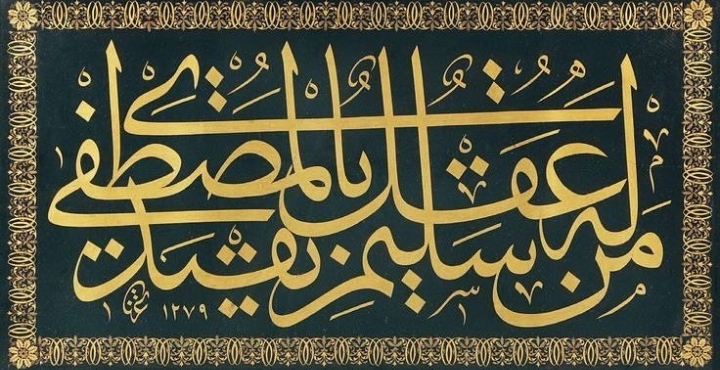 من له عقل سليم يقتدى بالمصطفى
١٢٧٩